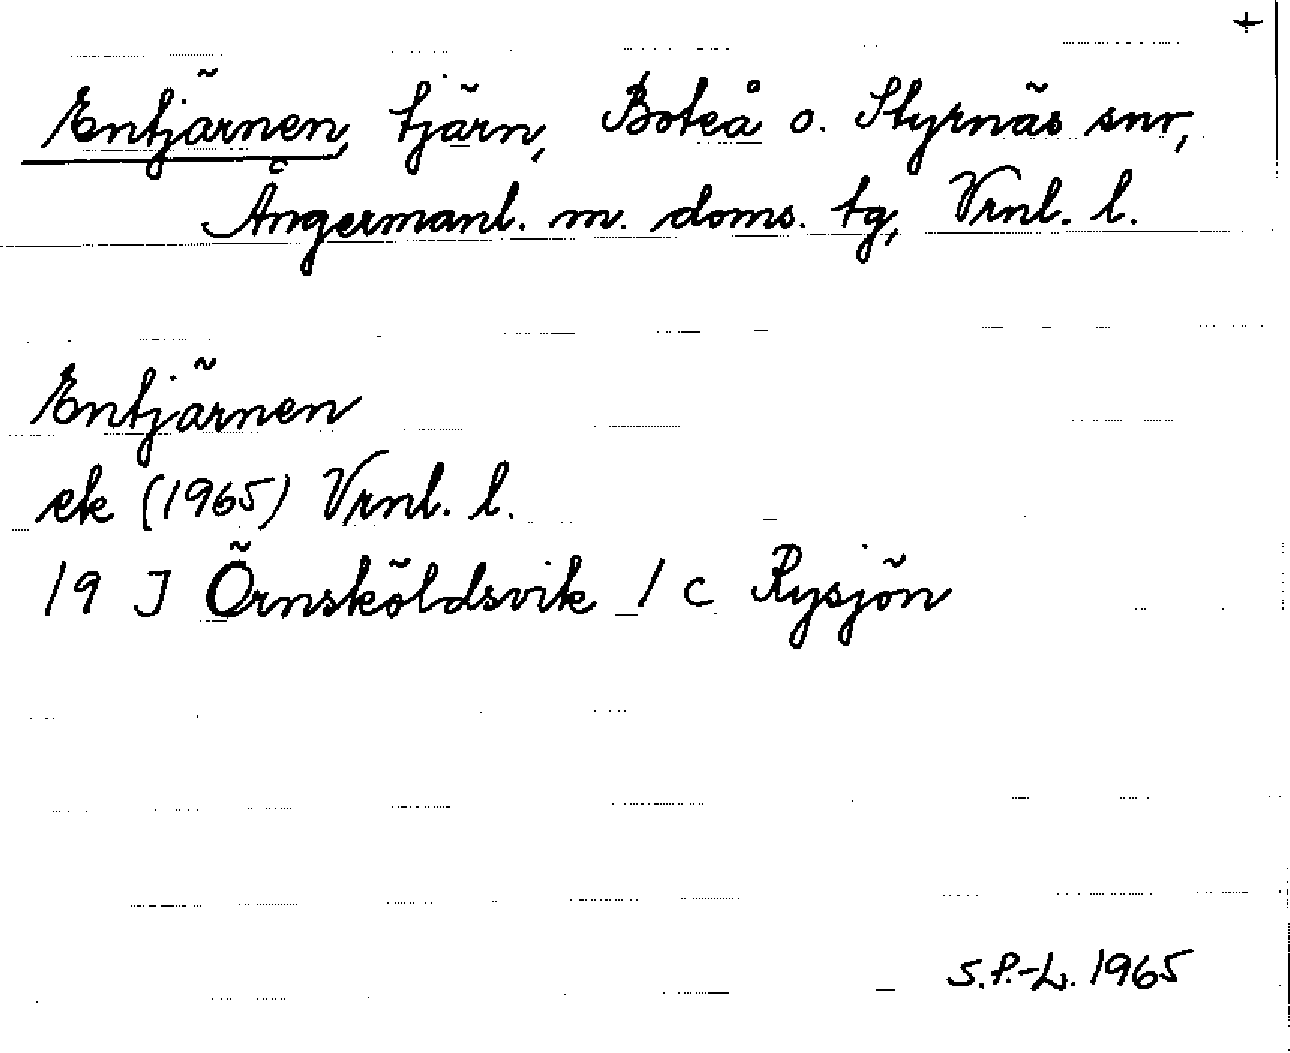 +
Entjärnen, tjärn, Boteå o. Styrnäs snr,
Ångermanl. m. doms. tg, Vrnl. l.
Entjärnen
ek (1965) Vrnl. l.
19 J Örnsköldsvik 1 c Rysjön
S.P.-L. 1965